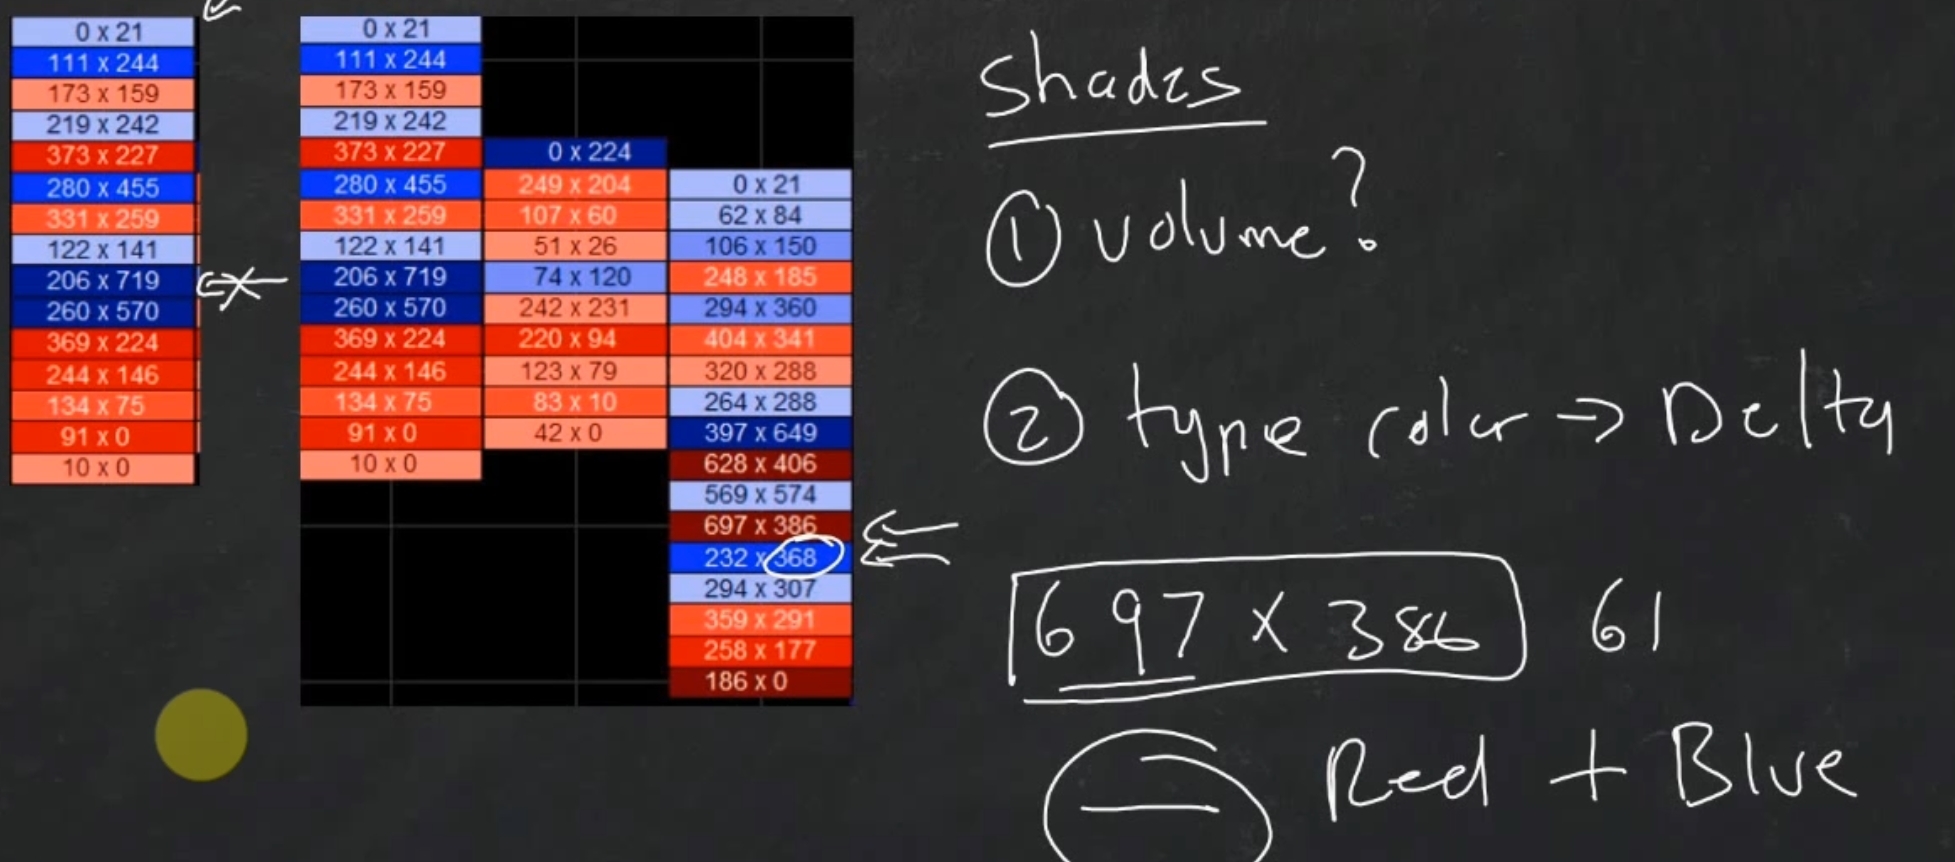 0 x 21
111 x 244
173 x 159
219 x 242
373 x 227
280 x 455
331 x 259
122 x 141
206 x 719
260 x 570
369 x 224
244 x 146
134 x 75
91 x 0
10 x 0
0 x 21
111 x 244
173 x 159
219 x 242
373 x 227
280 x 455
331 x 259
122 x 141
206 x 719
260 x 570
369 x 224
244 x 146
134 x 75
91 x 0
10 x 0
0 x 224
249 x 204
107 x 60
51 x 26
74 x 120
242 x 231
220 x 94
123 x 79
83 x 10
42 x 0
0 x 21
62 x 84
106 x 150
248 x 185
294 x 360
404 x 341
320 x 288
264 x 288
397 x 649
628 x 406
569 x 574
697 x 386
232 x 368
294 x 307
359 x 291
258 x 177
186 x 0
Shades
① volume?
② type color → Delta
697 x 386 61
Red + Blue